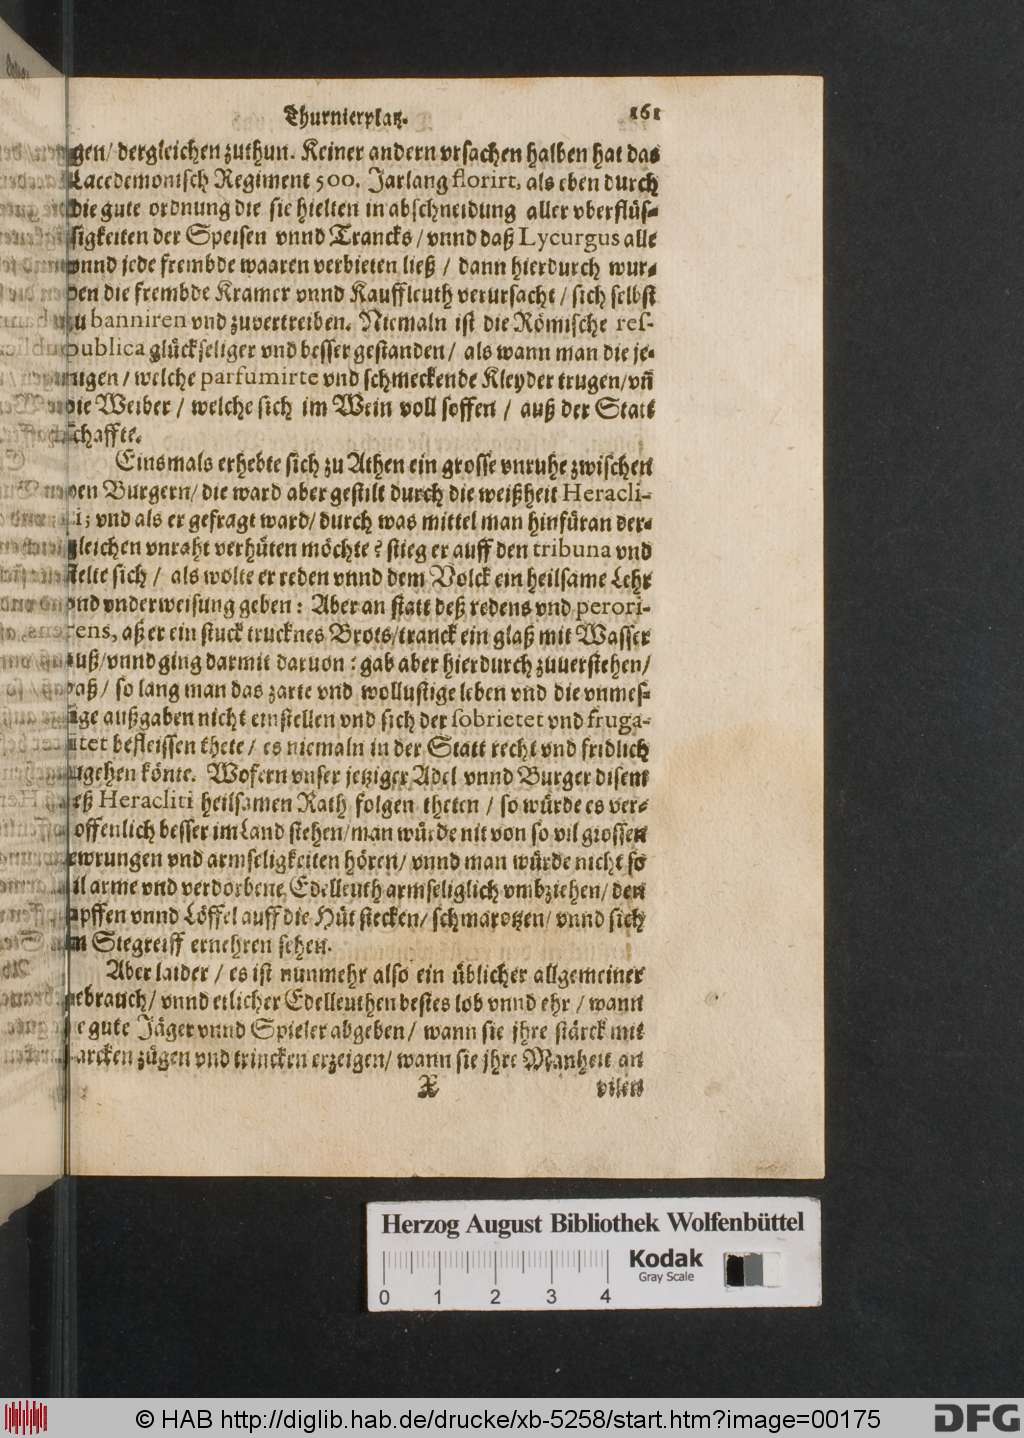 Thurnierplatz. 161
gen/ dergleichen zuthun. Keiner andern vrsachen halben hat das
Lacedemonisch Regiment 500. Jarlang florirt, als eben durch
die gute ordnung die sie hielten in abschneidung aller vberflüs-
sigkeiten der Speisen vnnd Trancks / vnnd daß Lycurgus alle
vnnd jede frembde waaren verbieten ließ / dann hierdurch wur-
den die frembde Kramer vnnd Kauffleuth verursacht / sich selbst
zu banniren vnd zuvertreiben. Niemaln ist die Römische res-
publica glückseliger vnd besser gestanden / als wann man die je-
nigen / welche parfumirte vnd schmeckende Kleyder trugen/vñ
die Weiber / welche sich im Wein voll soffen / auß der Statt
schaffte.
Einsmals erhebte sich zu Athen ein grosse vnruhe zwischen
den Burgern/ die ward aber gestilt durch die weißheit Heracli-
ti; vnd als er gefragt ward/ durch was mittel man hinfüran der-
gleichen vnraht verhüten möchte? stieg er auff den tribuna vnd
stelte sich / als wolte er reden vnnd dem Volck ein heilsame Lehr
vnd vnderweisung geben: Aber an statt deß redens vnd perori-
rens, aß er ein stuck trucknes Brots/tranck ein glaß mit Wasser
auß/vnnd ging darmit daruon: gab aber hierdurch zuuerstehen/
daß/ so lang man das zarte vnd wollustige leben vnd die vnmes-
sige außgaben nicht einstellen vnd sich der sobrietet vnd fruga-
litet befleissen thete/ es niemaln in der Statt recht vnd fridlich
zugehen könte. Wofern vnser jetziger Adel vnnd Burger disem
deß Heracliti heilsamen Rath folgen theten / so würde es ver-
hoffenlich besser im Land stehen/man würde nit von so vil grossen
tewrungen vnd armseligkeiten hören/ vnnd man würde nicht so
vil arme vnd verdorbene Edelleuth armseliglich vmbziehen/ den
Zapffen vnnd Löffel auff die Hüt stecken/ schmarotzen/ vnnd sich
im Stegreiff ernehren sehen.
Aber laider / es ist nunmehr also ein üblicher allgemeiner
gebrauch/ vnnd etlicher Edelleuthen bestes lob vnnd ehr / wann
sie gute Jäger vnnd Spieler abgeben/ wann sie jhre stärck mit
starcken zügen vnd trincken erzeigen/ wann sie jhre Manheit an
X vilen
Herzog August Bibliothek Wolfenbüttel
Kodak
Gray Scale
0 1 2 3 4
© HAB http://diglib.hab.de/drucke/xb-5258/start.htm?image=00175
DFG